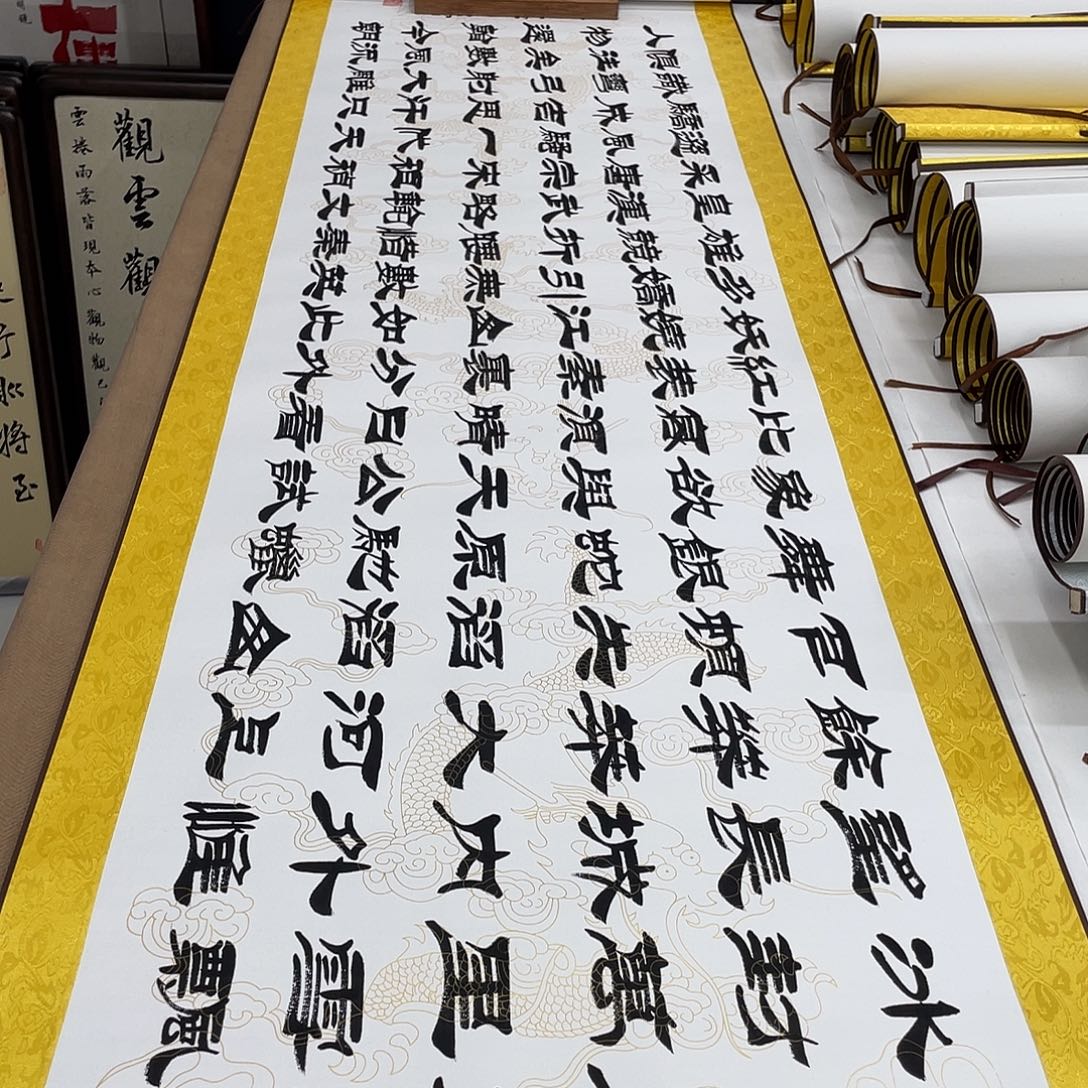 冰封萬里雪飄
望長城内外惟
餘莽莽大河上
下頓失滔滔山
舞銀蛇原馳蠟
象欲與天公試
比高須晴日看
紅裝素裹分外
妖嬈江山如此
多嬌引無數英
雄競折腰惜秦
皇漢武略輸文
采唐宗宋祖稍
遜風騷一代天
驕成吉思汗只
識彎弓射大雕
俱往矣數風流
人物還看今朝
觀雲觀
雲捲雨落皆現本心觀物觀己
行
將至